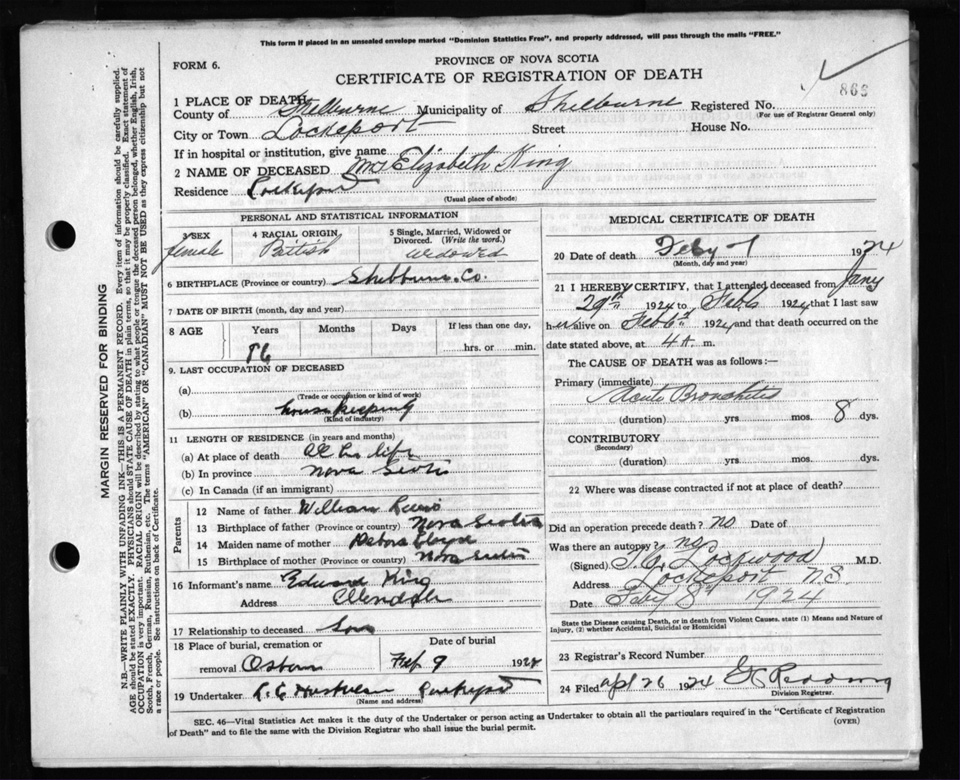 This form if placed in an unsealed envelope marked "Dominion Statistics Free", and properly addressed, will pass through the mails "FREE."
FORM 6.
PROVINCE OF NOVA SCOTIA
CERTIFICATE OF REGISTRATION OF DEATH
1 PLACE OF DEATH
County of Shelburne Municipality of Shelburne Registered No. 866
(For use of Registrar General only)
City or Town Lockeport Street House No.
If in hospital or institution, give name
2 NAME OF DECEASED Mrs Elizabeth King
Residence Lockeport
(Usual place of abode)
PERSONAL AND STATISTICAL INFORMATION
3 SEX 4 RACIAL ORIGIN 5 Single, Married, Widowed or Divorced. (Write the word.)
female British widowed
6 BIRTHPLACE (Province or country) Shelburne Co.
7 DATE OF BIRTH (month, day and year)
8 AGE Years Months Days If less than one day,
86 hrs. or min.
9. LAST OCCUPATION OF DECEASED
(a)
(Trade or occupation or kind of work)
(b) house keeping
(Kind of industry)
11 LENGTH OF RESIDENCE (in years and months)
(a) At place of death All her life
(b) In province Nova Scotia
(c) In Canada (if an immigrant)
Parents
12 Name of father William Lewis
13 Birthplace of father (Province or country) Nova Scotia
14 Maiden name of mother Lloyd
15 Birthplace of mother (Province or country) Nova Scotia
16 Informant's name Edward King
Address
17 Relationship to deceased Son
18 Place of burial, cremation or removal Osborn Date of burial Feb 9 1924
19 Undertaker Lockeport
(Name and address)
MEDICAL CERTIFICATE OF DEATH
20 Date of death Feby 7 1924
(Month, day and year)
21 I HEREBY CERTIFY, that I attended deceased from Jany
29th 1924 to Feb 6 1924 that I last saw
her alive on Feb 6th 1924 and that death occurred on the
date stated above, at 4 A. m.
The CAUSE OF DEATH was as follows:—
Primary (immediate) Acute Bronchitis
(duration) yrs mos. 8 dys.
CONTRIBUTORY
(Secondary)
(duration) yrs. mos. dys.
22 Where was disease contracted if not at place of death?
Did an operation precede death? no Date of
Was there an autopsy? no
(Signed) Lockwood M.D.
Address Lockeport N.S.
Date Feby 8th 1924
State the Disease causing Death, or in death from Violent Causes, state (1) Means and Nature of
Injury, (2) whether Accidental, Suicidal or Homicidal
23 Registrar's Record Number
24 Filed Apl 26 1924
Division Registrar.
SEC. 46—Vital Statistics Act makes it the duty of the Undertaker or person acting as Undertaker to obtain all the particulars required in the "Certificate of Registration
of Death" and to file the same with the Division Registrar who shall issue the burial permit.
(OVER)
MARGIN RESERVED FOR BINDING
N.B—WRITE PLAINLY WITH UNFADING INK—THIS IS A PERMANENT RECORD. Every item of information should be carefully supplied.
AGE should be stated EXACTLY. PHYSICIANS should STATE CAUSE OF DEATH in plain terms, so that it may be properly classified. Exact statement of
OCCUPATION is very important. RACIAL ORIGIN will be described by stating to what people or tongue the deceased person belonged, whether English, Irish,
Scotch, French, German, Russian, Ruthenian, etc. The terms "AMERICAN" OR "CANADIAN" MUST NOT BE USED as they express citizenship but not
a race or people. See instructions on back of Certificate.